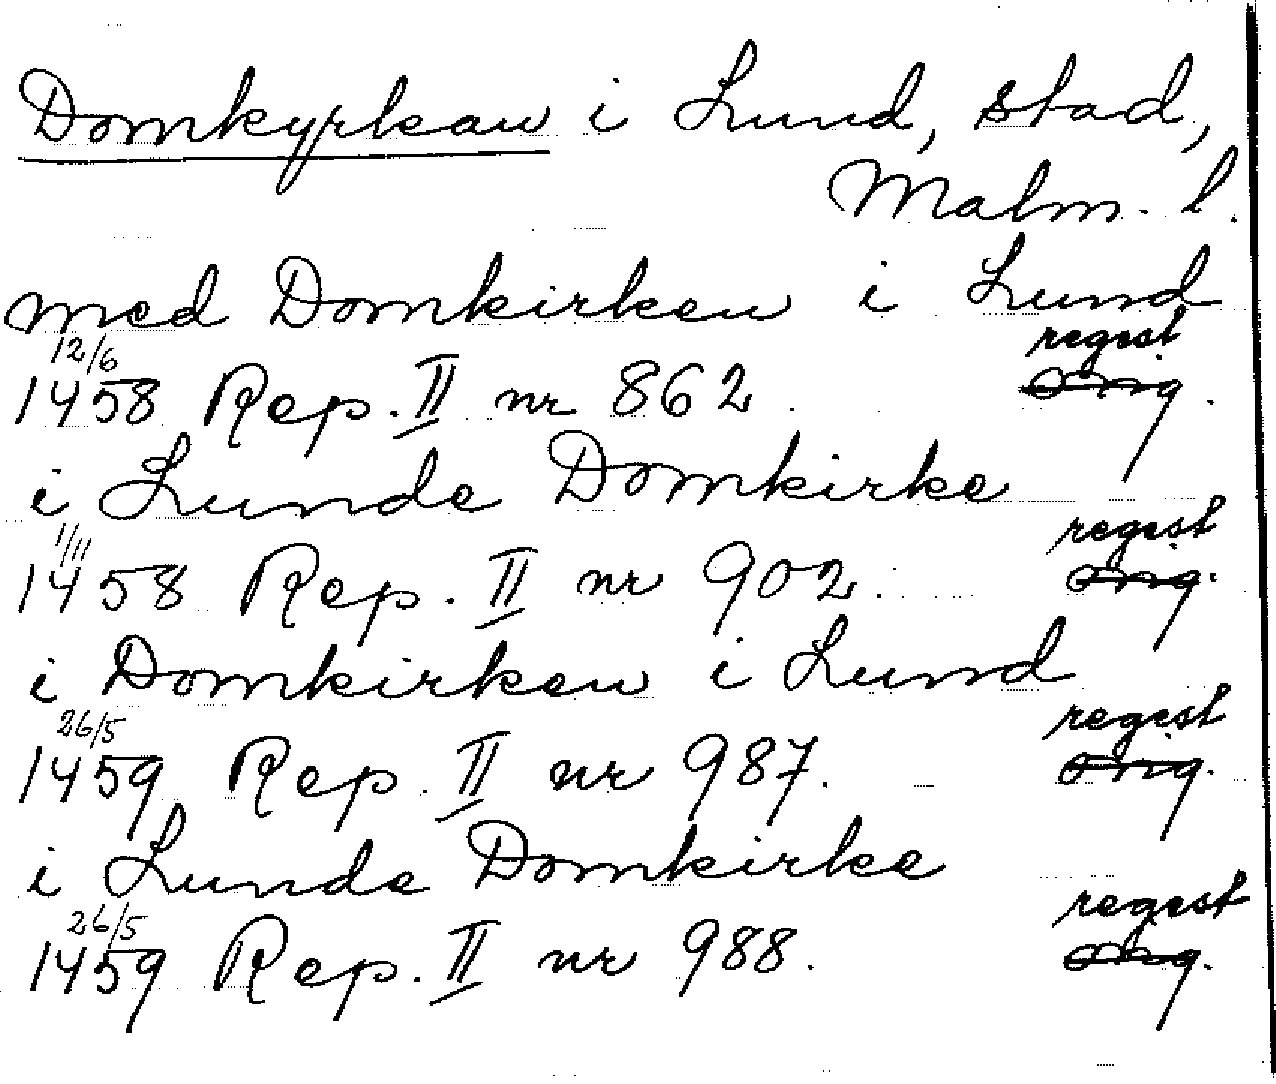 Domkyrkan i Lund, stad,
Malm. l.
med Domkirken i Lund
12/6 regest
1458 Rep. II nr 862. org.
i Lunde Domkirke
1/11 regest
1458 Rep. II nr 902. org.
i Domkirken i Lund
26/5 regest
1459 Rep. II nr 987. org.
i Lunde Domkirke
26/5 regest
1459 Rep. II nr 988. org.